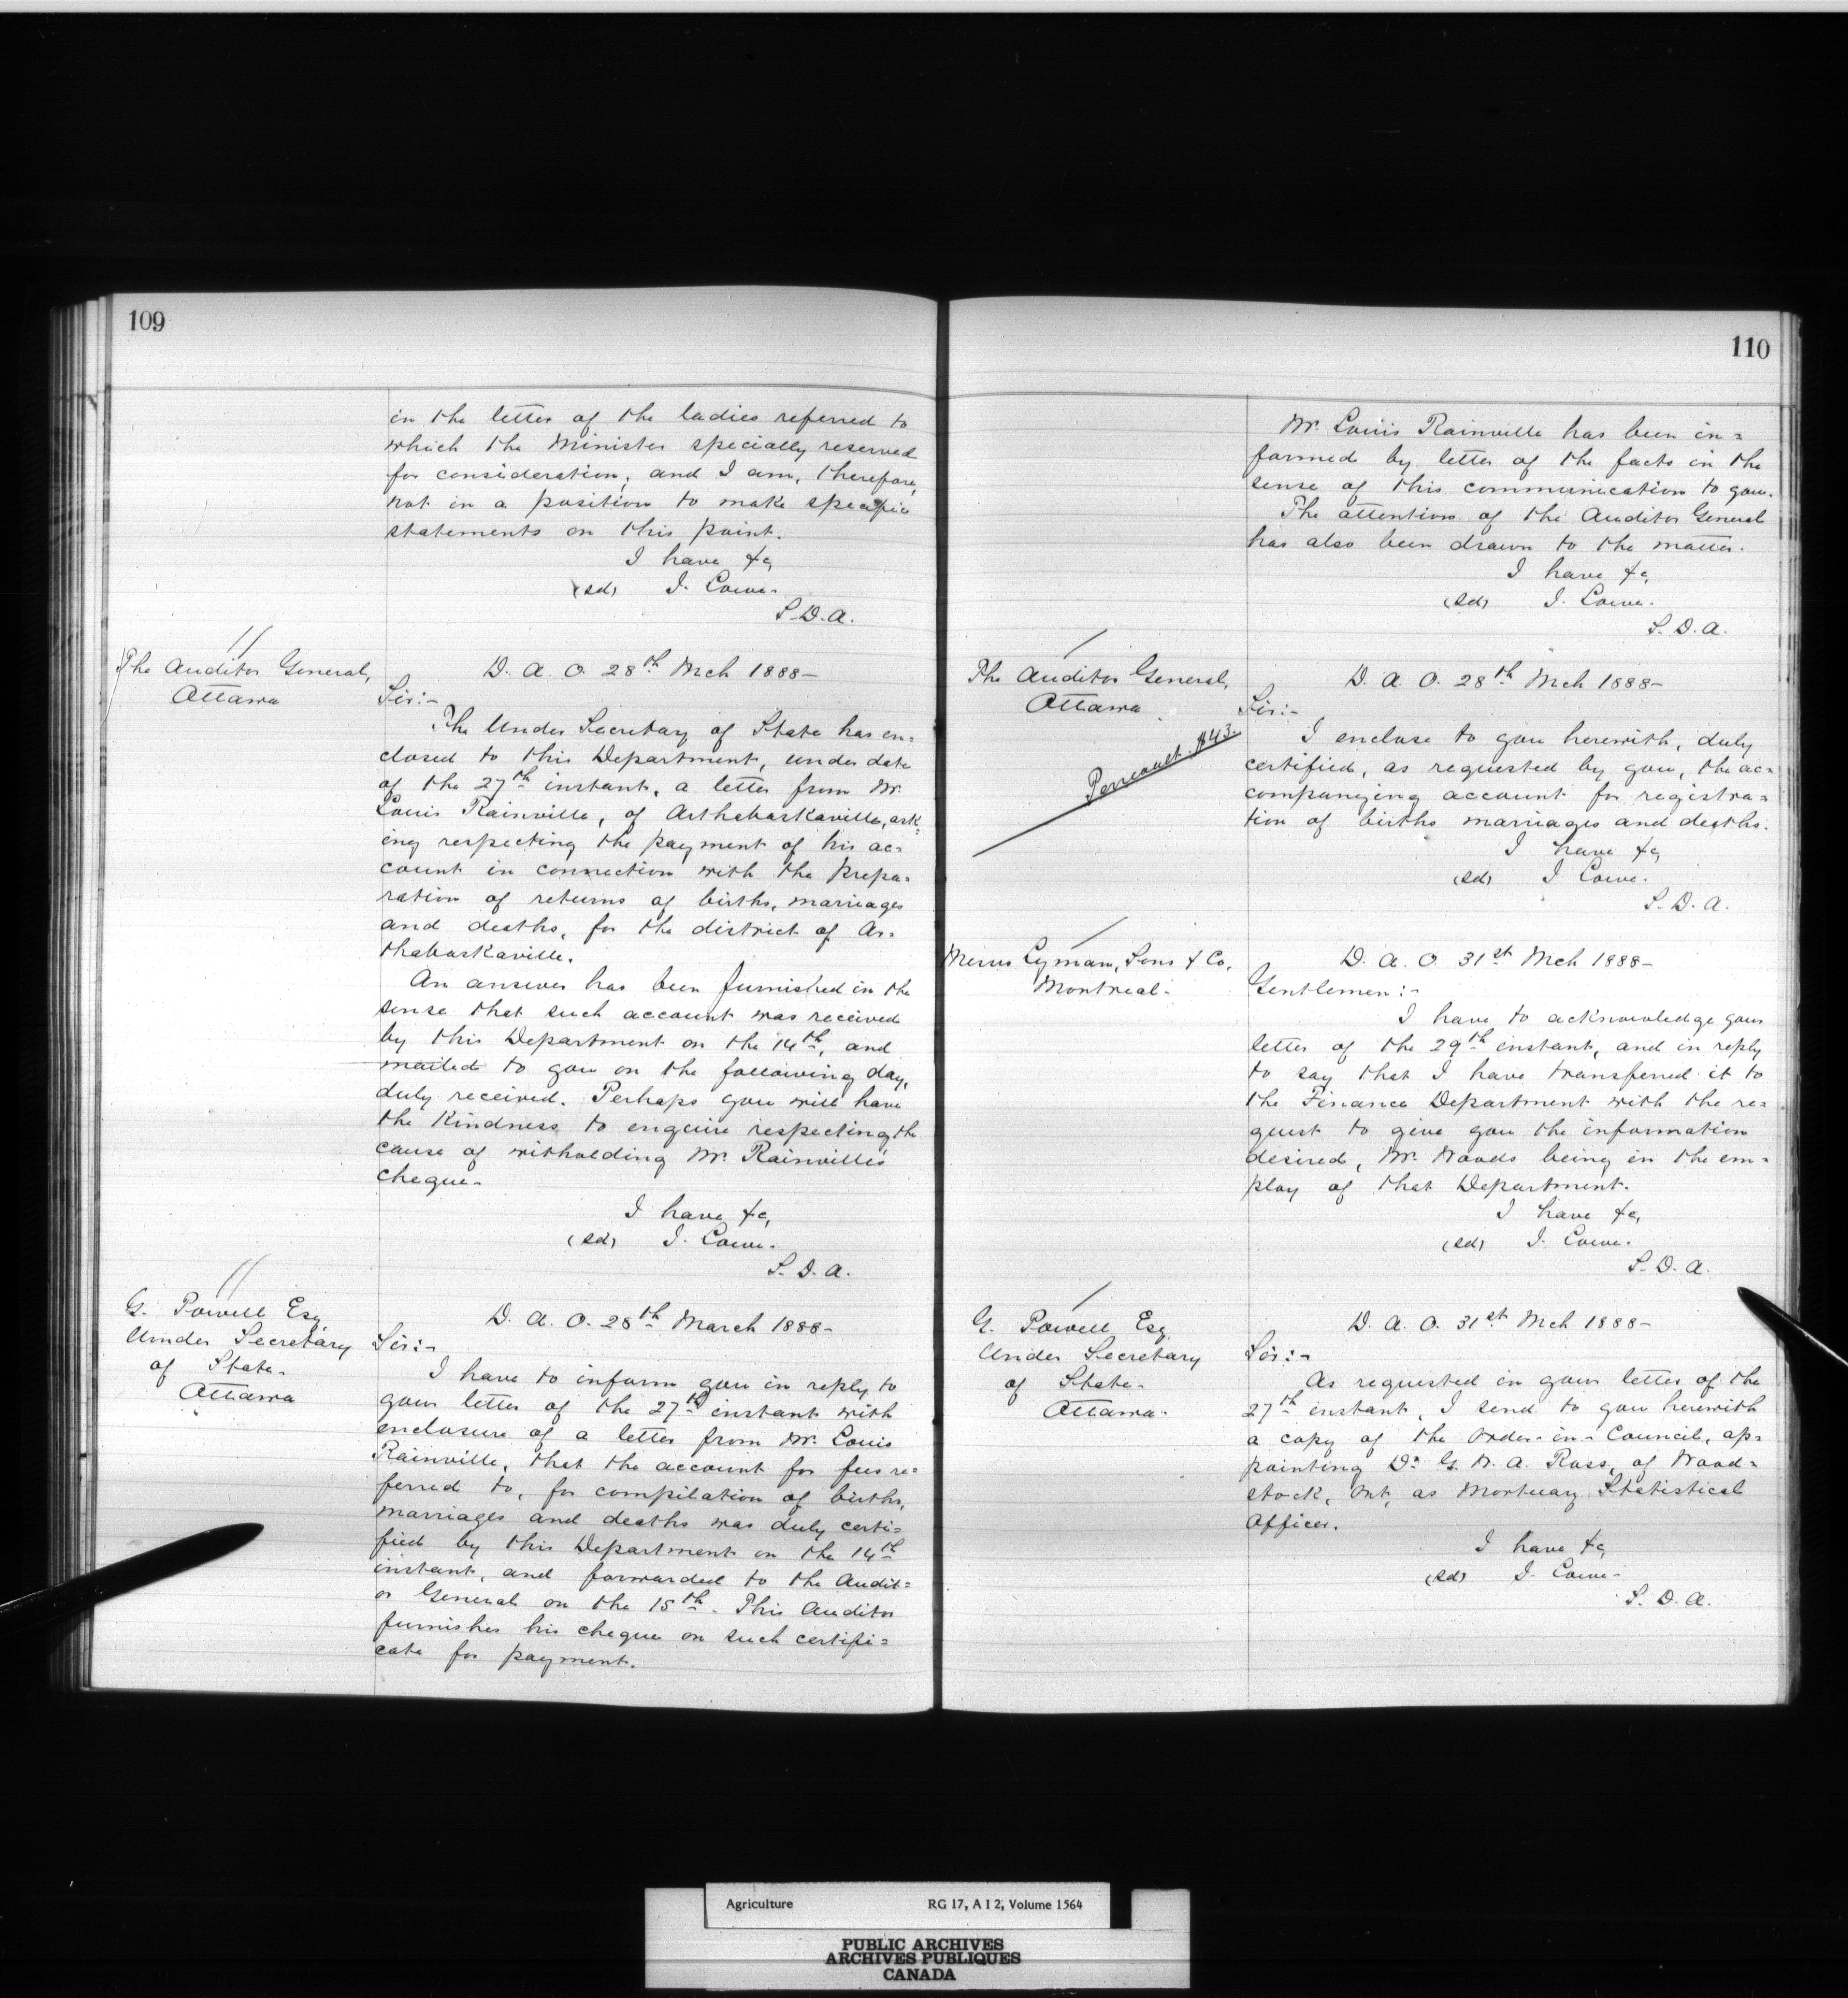 109
in the letter of the ladies referred to
which the Minister specially reserved
for consideration; and I am, therefore,
not in a position to make specific
statements on this point.
I have &c,
(sd) J. Lowe.
S.D.A.
The Auditor General,
Ottawa
D. A. O. 28th Mch 1888-
Sir:-
The Under Secretary of State has en=
closed to this Department, under date
of the 27th instant, a letter from Mr.
Louis Rainville, of Arthabaskaville, ask=
ing respecting the payment of his ac=
count in connection with the prepa=
ration of returns of births, marriages
and deaths, for the district of Ar=
thabaskaville.
An answer has been furnished in the
sense that such account was received
by this Department on the 14th, and
mailed to you on the following day,
duly received. Perhaps you will have
the kindness to enquire respecting the
cause of witholding Mr. Rainville's
cheque-
I have &c,
(sd) J. Lowe.
S. D. A.
G. Powell Esq
Under Secretary
of State-
Ottawa
D. A. O. 28th March 1888-
Sir:-
I have to inform you in reply to
your letter of the 27th instant with
enclosure of a letter from Mr. Louis
Rainville, that the account for fees re=
ferred to, for compilation of births,
marriages and deaths was duly certi=
fied by this Department on the 14th
instant, and forwarded to the Audit=
or General on the 15th. This Auditor
furnishes his cheque on such certifi=
cate for payment.
110
Mr. Louis Rainville has been in=
formed by letter of the facts in the
sense of this communication to you.
The attention of the Auditor General
has also been drawn to the matter.
I have &c,
(sd) J. Lowe.
S. D. A.
The Auditor General,
Ottawa
$43.
D. A. O. 28th Mch 1888-
Sir:-
I enclose to you herewith, duly
certified, as requested by you, the ac=
companying account for registra=
tion of births marriages and deaths.
I have &c,
(sd) J Lowe.
S. D. A.
Messrs Lyman, Sons & Co,
Montreal-
D. A. O. 31st Mch 1888-
Gentlemen:-
I have to acknowledge your
letter of the 29th instant, and in reply
to say that I have transferred it to
the Finance Department with the re=
quest to give you the information
desired, Mr. Woods being in the em=
ploy of that Department.
I have &c,
(sd) J. Lowe.
S. D. A.
G. Powell Esq
Under Secretary
of State-
Ottawa-
D. A. O. 31st Mch 1888-
Sir:-
As requested in your letter of the
27th instant, I send to you herewith
a copy of the Order-in-Council, ap=
pointing Dr G. W. A. Ross, of Wood=
stock, Ont, as Mortuary Statistical
Officer.
I have &c,
(sd) J. Lowe-
S. D. A.
Agriculture RG 17, A I 2, Volume 1564
PUBLIC ARCHIVES
ARCHIVES PUBLIQUES
CANADA